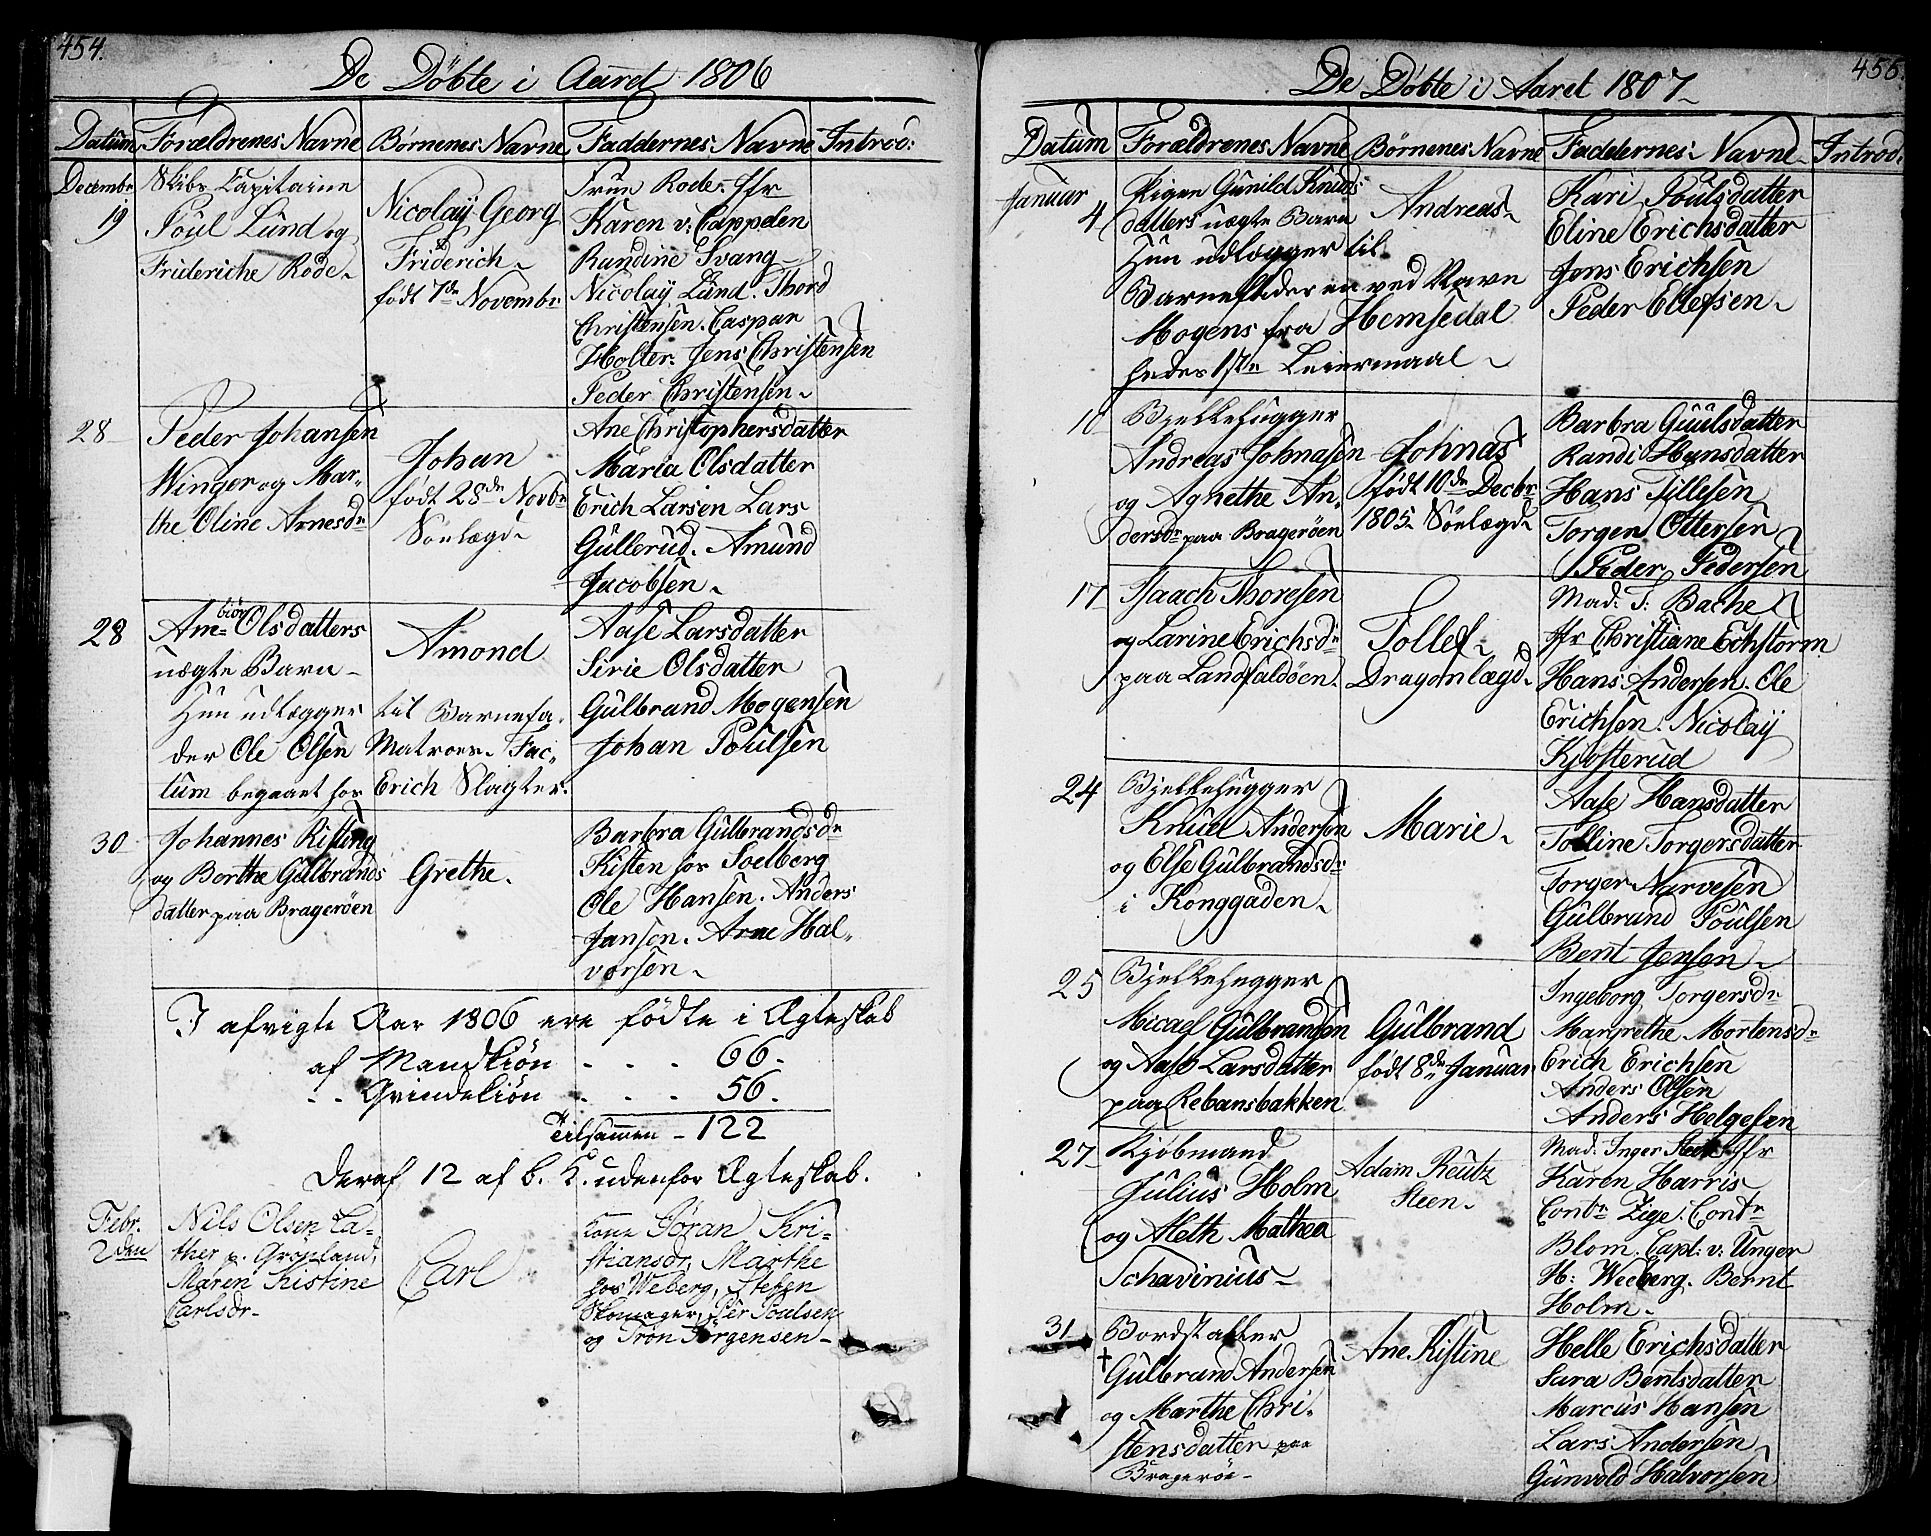 454.
De Döbte i Aaret 1806
Datum Forældrenes Navne Børnenes Navne Faddernes Navne Introd:
Decembr
19
Skibs Capitaine
Poul Lund og
Frideriche Rode
Nicolaÿ Georg
Friderich
født 7de Novembr
Trun Rode. Jfr
Karen v: Cappelen
Randine Svang
Nicolaÿ Lund. Thord
Christensen. Caspar
Holter. Jens Christensen
Peder Christensen
28
Peder Johansen
Winger og Mar-
the Oline Arnesdr
Johan
født 28de Novbr
Söelægd
Ane Christophersdatter
Maria Olsdatter
Erich Larsen Lars
Gullerud. Amund
Jacobsen
28
Ambiør Olsdatters
uægte Barn
Hun udlægger
der Ole Olsen
tum begaaet hos
Amond
til Barnefa-
Matroes. Fac-
Erich Slagter.
Aase Larsdatter
Sirie Olsdatter
Gulbrand Mogensen
Johan Poulsen
30
Johannes Kisting
og Berthe Gulbrands
datter paa Bragerøen
Grethe.
Barbra Gulbrandsdr
Kisten hos Soelberg
Ole Hansen. Anders
Jansen. Arne Hal-
vorsen
I afvigte Aar 1806 ere fødte i Ægteskab
af Mandkiøn . . . 66.
. . Qvindekiøn . . . 56.
Tilsammen - 122
Deraf 12 af b. K. udenfor Ægteskab.
Febr.
2den
Nils Olsen La-
ther p. Grønland,
Maren Kistine
Carlsdr
Carl
Kone Jøran Kri-
stiansdr, Marthe
hos Weberg, Steffen
Skomager, Per Poulsen
og Trøn Jørgensen
455.
De Döbte i Aaret 1807
Datum Forældrenes Navne Børnenes Navne Faddernes Navne Introd:
Januar
4
Pigen Gunild Knuds
datters uægte Barn
Hun udlægger til
Barnefader en ved Navn
Mogens fra Hemsedal
hedes 1ste Leiermaal
Andreas
Kari Poulsdatter
Eline Erichsdatter
Jens Erichsen
Peder Ellefsen
10
Bjelkehugger
Andreas Johnasen
og Agnethe An-
dersdr paa Bragerøen
Johnas
født 10de Decbr
1805. Söelægd
Barbra Guulsdatter
Randi Hansdatter
Hans Tillesen
Torgen Ottersen
Peder Pedersen
17
Isaach Thoresen
og Larine Erichsdr
paa Landfaldøen.
Tollef
Dragonlægd
Mad. T: Bache
Jfr Christiane Echstorm
Hans Andersen. Ole
Erichsen. Nicolaÿ
Kjosterud
24
Bjelkehugger
Knud Andersen
og Else Gulbrandsdr
i Konggaden
Marie
Aase Hansdatter
Tolline Torgersdatter
Torger Narvesen
Gulbrand Poulsen
Bent Jensen
25
Bjelkehugger
Micael Gulbrandsen
og Aase Larsdatter
paa Rebansbakken
Gulbrand
født 8de Januar
Ingeborg Torgersdr
Margrethe Mortensdr
Erich Erichsen
Anders Olsen
Anders Helgesen
27
Kjøbmand
Julius Holm
og Aleth Mathea
Schavinius
Adam Reutz
Steen
Mad. Inger Jfr
Karen Harris
Contr Zige. Contr
Blom. Capt: v: Unger
H: Weeberg. Bernt
Holm
31
Bordstabler
Gulbrand Andersen
og Marthe Chri-
stensdatter paa
Bragerøe
Ane Kistine
Helle Erichsdatter
Sara Bentsdatter
Marcus Hansen
Lars Andersen
Gunvold Halvorsen